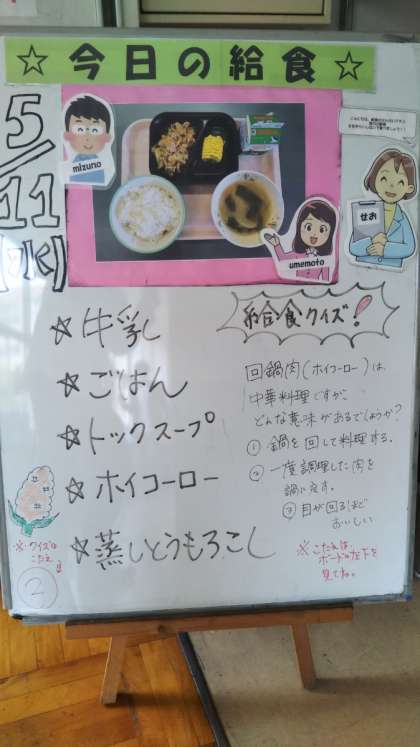 ☆今日の給食☆
5/11
(水)
mizuno
umemoto
せお
☆牛乳
☆ごはん
☆トックスープ
☆ホイコーロー
☆蒸しとうもろこし
給食クイズ!
回鍋肉(ホイコーロー)は、
中華料理ですが、
どんな意味があるでしょうか?
① 鍋を回して料理する。
② 一度調理した肉を
鍋に戻す。
③ 目が回るほど
おいしい
※こたえは、
ボードの左下を
見てね。
※クイズの
こたえ
②